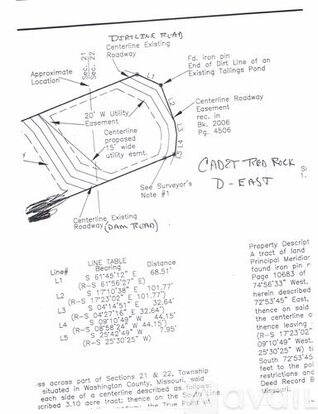 DIRTLINE ROAD
Centerline Existing
Roadway
Fd. iron pin
End of Dirt Line of an
Existing Tailings Pond
Approximate
Location
Sec. 21
Sec. 22
L1
L2
L3
L4
L5
20' W Utility
Easement
Centerline Roadway
Easement
rec. in
Bk. 2006
Pg. 4506
Centerline
proposed
15' wide
utility esmt.
CADET RED ROCK
D-EAST
See Surveyor's
Note #1
Centerline Existing
Roadway (DAM ROAD)
LINE TABLE
Line# Bearing Distance
L1 S 61°45'12" E 68.51'
(R-S 61°56'27" E)
L2 S 17°10'38" E 101.77'
(R-S 17°23'02" E 101.77')
L3 S 04°14'51" E 32.64'
(R-S 04°27'16" E 32.64')
L4 S 09°10'49" W 44.15'
(R-S 08°58'24" W 44.15')
L5 S 25°42'49" W 7.95'
(R-S 25°30'25" W)
Property Descript
A tract of land
Principal Meridia
found iron pin r
Page 10683 of
74°56'33" West,
herein described
72°53'45" East,
thence on said
the centerline o
thence leaving
(R-S 17°23'02"
09°10'49" West,
25°30'25" W) t
South 72°53'45
feet to the poi
restrictions and
Deed Record B
ss across part of Sections 21 & 22, Township
situated in Washington County, Missouri, said
each side of a centerline described as follows:
scribed 3.10 acre tract; thence on the south